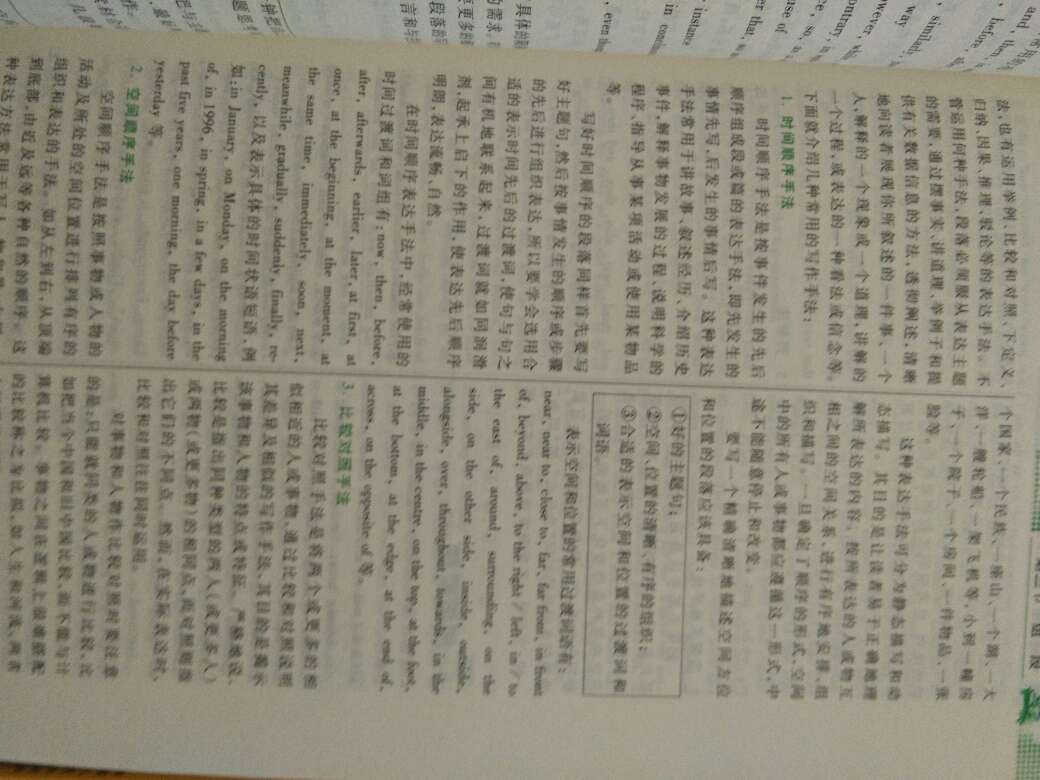 法,也有运用举例、比较和对照、下定义、
归纳、因果、推理、驳论等的表达手法。不
管运用何种手法,段落必须服从表达主题
的需要,通过摆事实、讲道理、举例子和提
供有关数据信息的方法,透彻阐述、清晰
地向读者展现你所叙述的一件事、一个
人,解释的一个现象或一个道理,讲解的
一个过程,或表达的一种看法或信念等。
下面就介绍几种常用的写作手法:
1. 时间顺序手法
时间顺序手法是按事件发生的先后
顺序组成段或成篇的表达手法,即先发生的
事情先写,后发生的事情后写。这种表达
手法常用于讲故事、叙述经历、介绍历史
事件,解释事物发展的过程、说明科学的
程序、指导从事某项活动或使用某物品
等。
写好时间顺序的段落同样首先要写
好主题句,然后按事情发生的顺序或步骤
的先后进行组织表达,所以要学会选用合
适的表示时间先后的过渡词,使句与句之
间有机地联系起来,过渡词就如同润滑
剂,起承上启下的作用,使表达先后顺序
明朗,表达流畅、自然。
在时间顺序表达手法中,经常使用的
时间过渡词和词组有:now, then, before,
after, afterwards, earlier, later, at first, at
once, at the beginning, at the moment, at
the same time, immediately, soon, next,
meanwhile, gradually, suddenly, finally, re-
cently, 以及表示具体的时间状语短语,例
如:in January, on Monday, on the morning
of, in 1996, in spring, in a few days, in the
past five years, one morning, the day before
yesterday 等。
2. 空间顺序手法
空间顺序手法是按照事物或人物的
活动及所处的空间位置进行排列有序的
组织和表达的手法。如从左到右,从顶端
到底部,由近及远等各种自然的顺序。这
种表达方法常用于写
个国家、一个民族、一座山、一个湖、一大
洋、一艘轮船、一架飞机等,小到一幢房
子、一个院子、一个房间、一件物品、一张
脸等。
这种表达手法可分为静态描写和动
态描写。其目的是让读者易于正确地理
解所表达的内容。按所表达的人或物互
相之间的空间关系,进行有序地安排、组
织和描写。一旦确定了顺序的形式,空间
中的所有人或事物都应遵循这一形式,中
途不能随意停止和改变。
要写一个精确清晰地描述空间方位
和位置的段落应该具备:
①好的主题句;
②空间、位置的清晰、有序的组织;
③合适的表示空间和位置的过渡词和
词语。
表示空间和位置的常用过渡词语有:
near, near to, close to, far, far from, in front
of, beyond, above, to the right / left, in / to
the east of, around, surrounding, on the
side, on the other side, inside, outside,
alongside, over, throughout, towards, in the
middle, in the centre, on the top, at the foot,
at the bottom, at the edge, at the end of,
across, on the opposite of 等。
3. 比较对照手法
比较对照手法是将两个或更多的相
似相近的人或事物,通过比较和对照说明
其差异及相似的写作手法。其目的是揭示
该事物和人物的特点或特征。严格地说,
比较是指出同种类型的两人(或更多人)
或两物(或更多物)的相同点,而对照则指
出它们的不同点。然而,在实际表达时,
比较和对照往往同时运用。
对事物和人物作比较对照时要注意
的是:只能就同类的人或物进行比较,比
如把当个中国和旧中国比较,而不能与计
算机比较。事物之间在逻辑上很难搭配
的比较称之为比拟,如人生和河流,两者